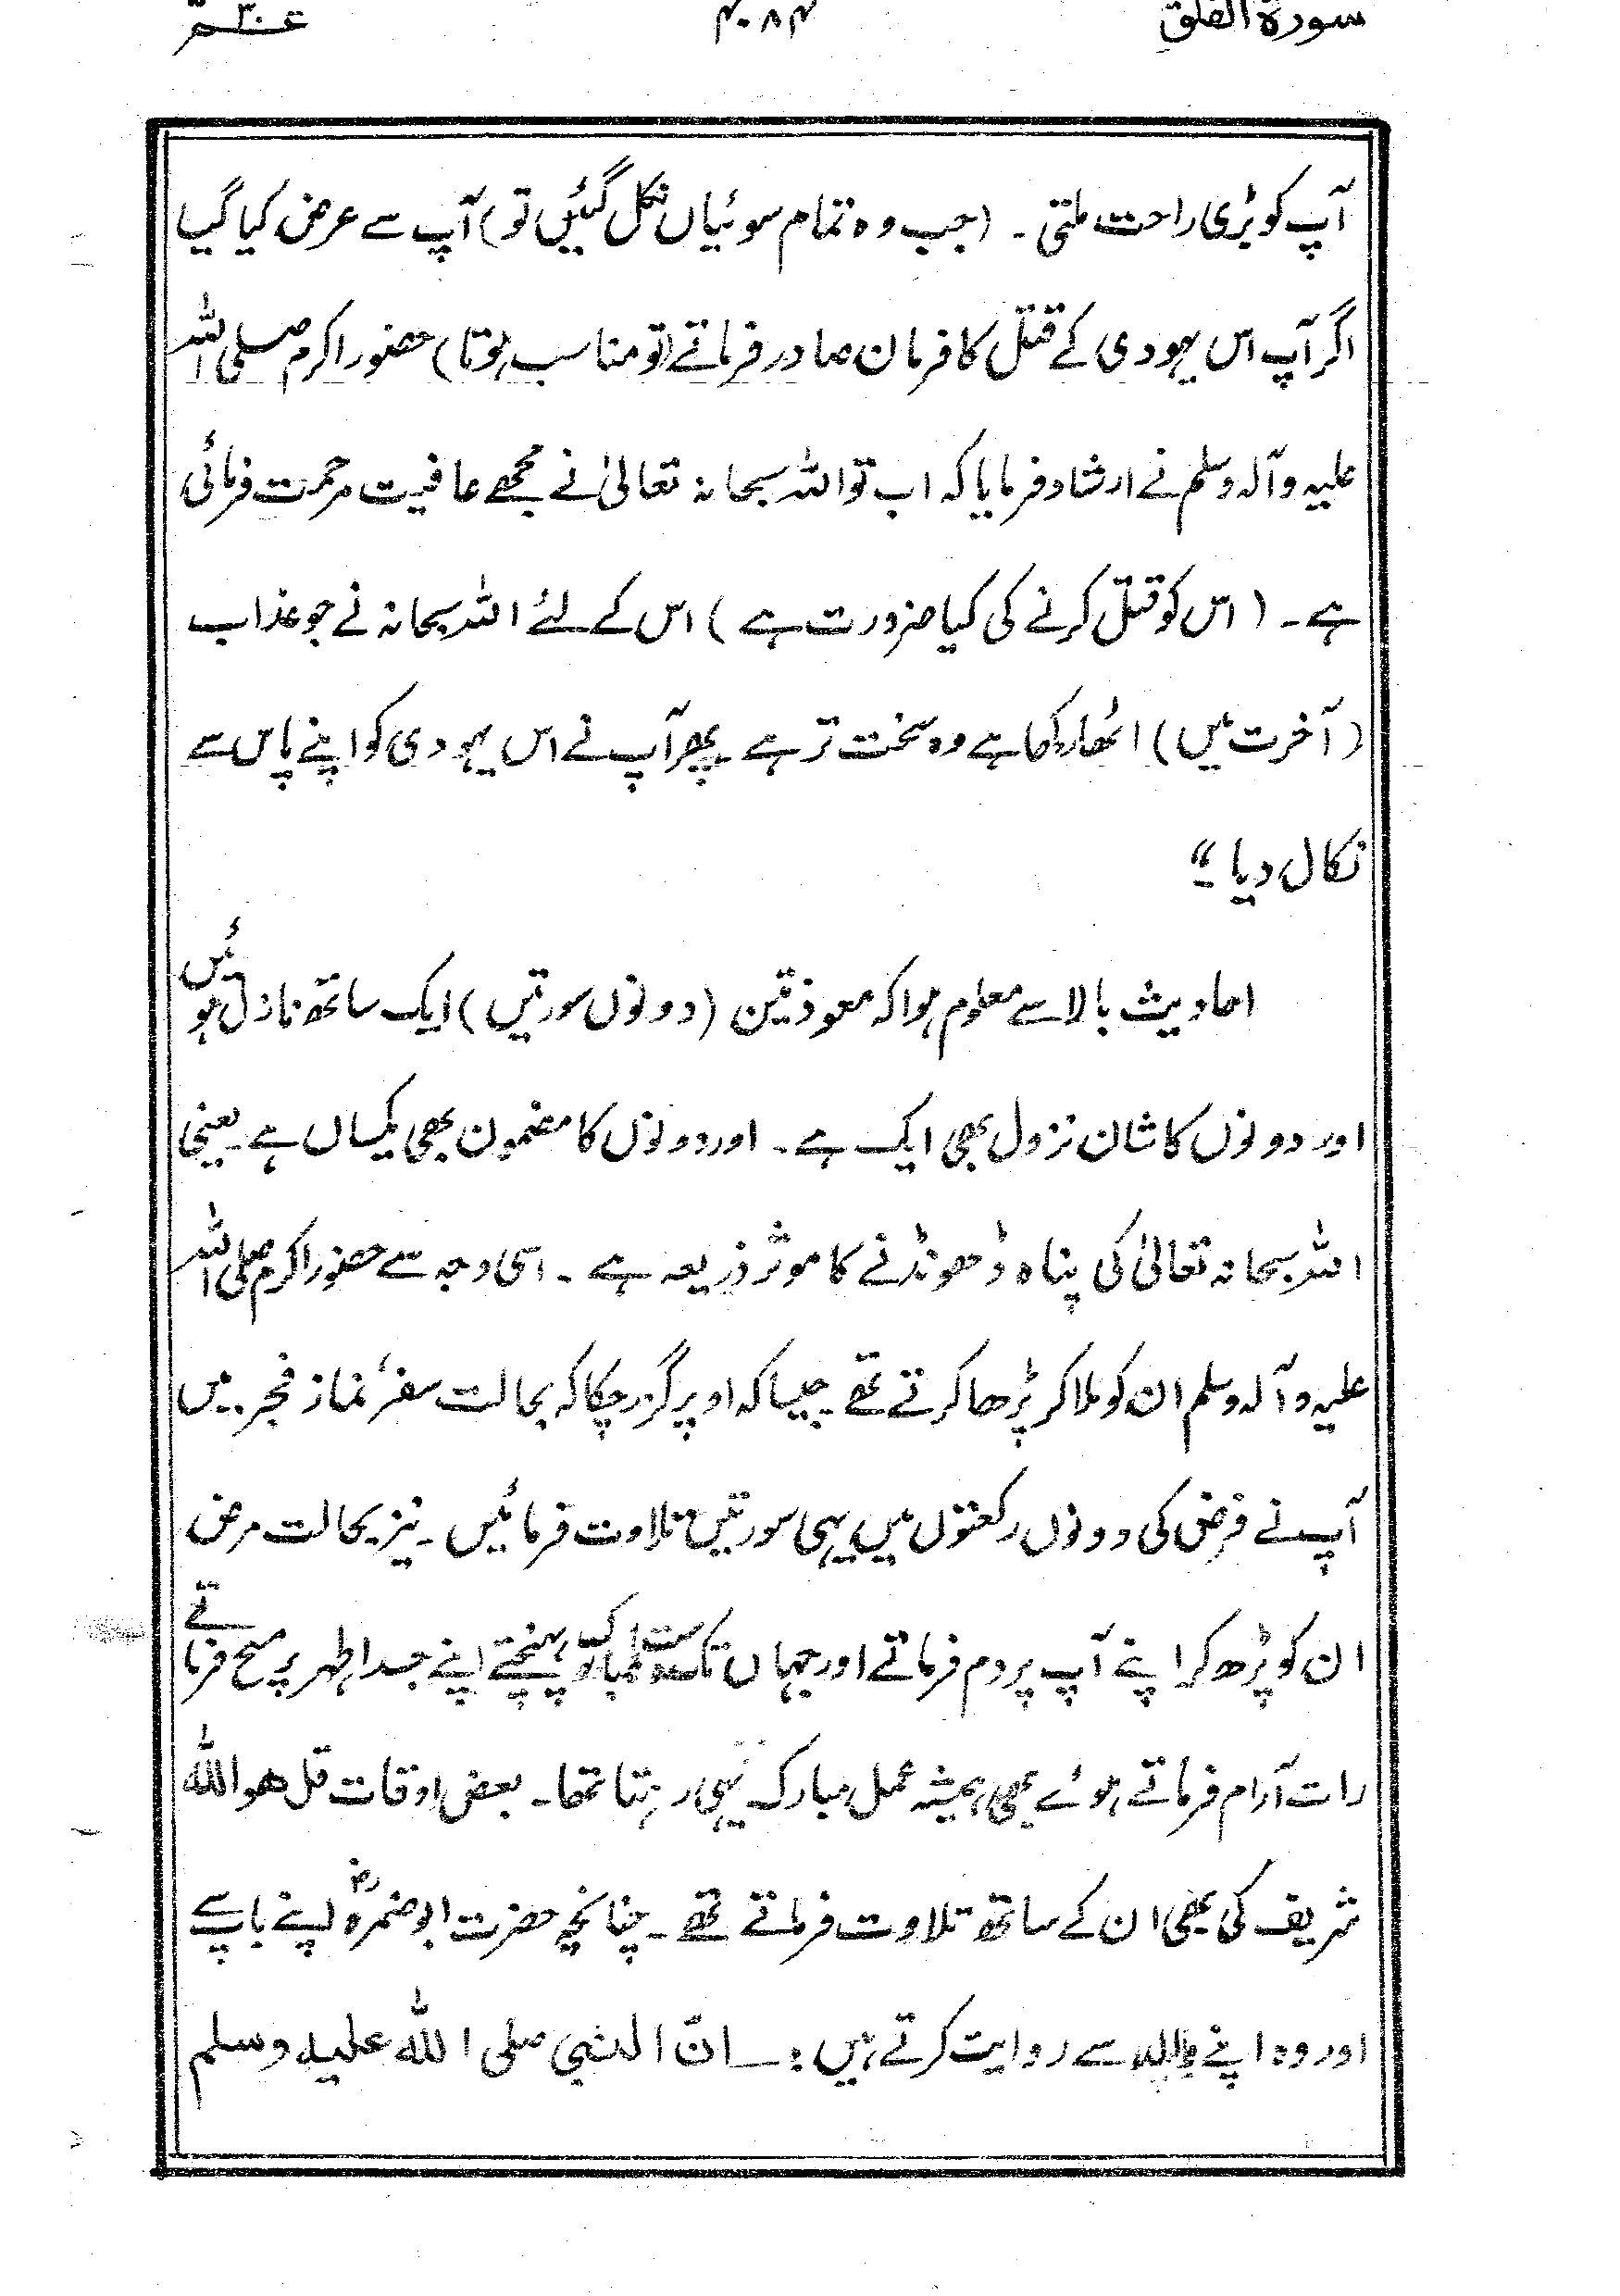 سورۃ الفلق ۴۰۸۴ عـــم ۳۰
آپ کو بڑی راحت ملتی ۔ (جب وہ تمام سوئیاں نکل گئیں تو) آپ سے عرض کیا گیا
اگر آپ اس یہودی کے قتل کا فرمان صادر فرماتے (تو مناسب ہوتا) حضور اکرم صلی اللہ
علیہ وآلہ وسلم نے ارشاد فرمایا کہ اب تو اللہ سبحانہ تعالیٰ نے مجھے عافیت مرحمت فرمائی
ہے ۔ (اس کو قتل کرنے کی کیا ضرورت ہے) اس کے لئے اللہ سبحانہ نے جو عذاب
(آخرت میں) اٹھا رکھا ہے وہ سخت تر ہے ۔ پھر آپ نے اس یہودی کو اپنے پاس سے
نکال دیا ۔“
احادیث بالا سے معلوم ہوا کہ معوذتین (دونوں سورتیں) ایک ساتھ نازل ہوئیں
اور دونوں کا شان نزول بھی ایک ہے ۔ اور دونوں کا مضمون بھی یکساں ہے ۔ یعنی
اللہ سبحانہ تعالیٰ کی پناہ ڈھونڈنے کا موثر ذریعہ ہے ۔ اسی وجہ سے حضور اکرم صلی اللہ
علیہ وآلہ وسلم ان کو ملا کر پڑھا کرتے تھے ۔ جیسا کہ اوپر گزر چکا کہ بحالت سفر، نماز فجر میں
آپ نے فرض کی دونوں رکعتوں میں یہی سورتیں تلاوت فرمائیں ۔ نیز بحالت مرض
ان کو پڑھ کر اپنے آپ پر دم فرماتے اور جہاں تک دست مبارک پہنچتے اپنے جسد اطہر پر مسح فرماتے
رات آرام فرماتے ہوئے بھی ہمیشہ عمل مبارک یہی رہتا تھا ۔ بعض اوقات قل ھو اللہ
شریف کی بھی ان کے ساتھ تلاوت فرماتے تھے ۔ چنانچہ حضرت ابو ضمرہؓ اپنے باپ سے
اور وہ اپنے سے روایت کرتے ہیں :ــ انّ النبی صلی اللہ علیہ وسلم